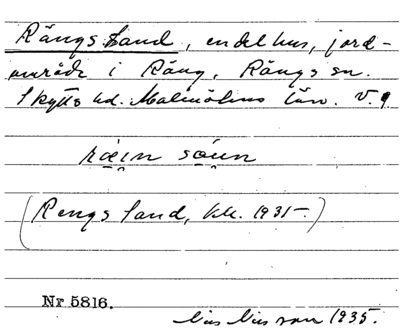 Rängs Sand, en del hus, jord-
område i Räng, Rängs sn.
Skytts hd. Malmöhus län. V. 9
(Rengs Sand, kk. 1931-)
Nr 5816.
Nils Nilsson 1935.